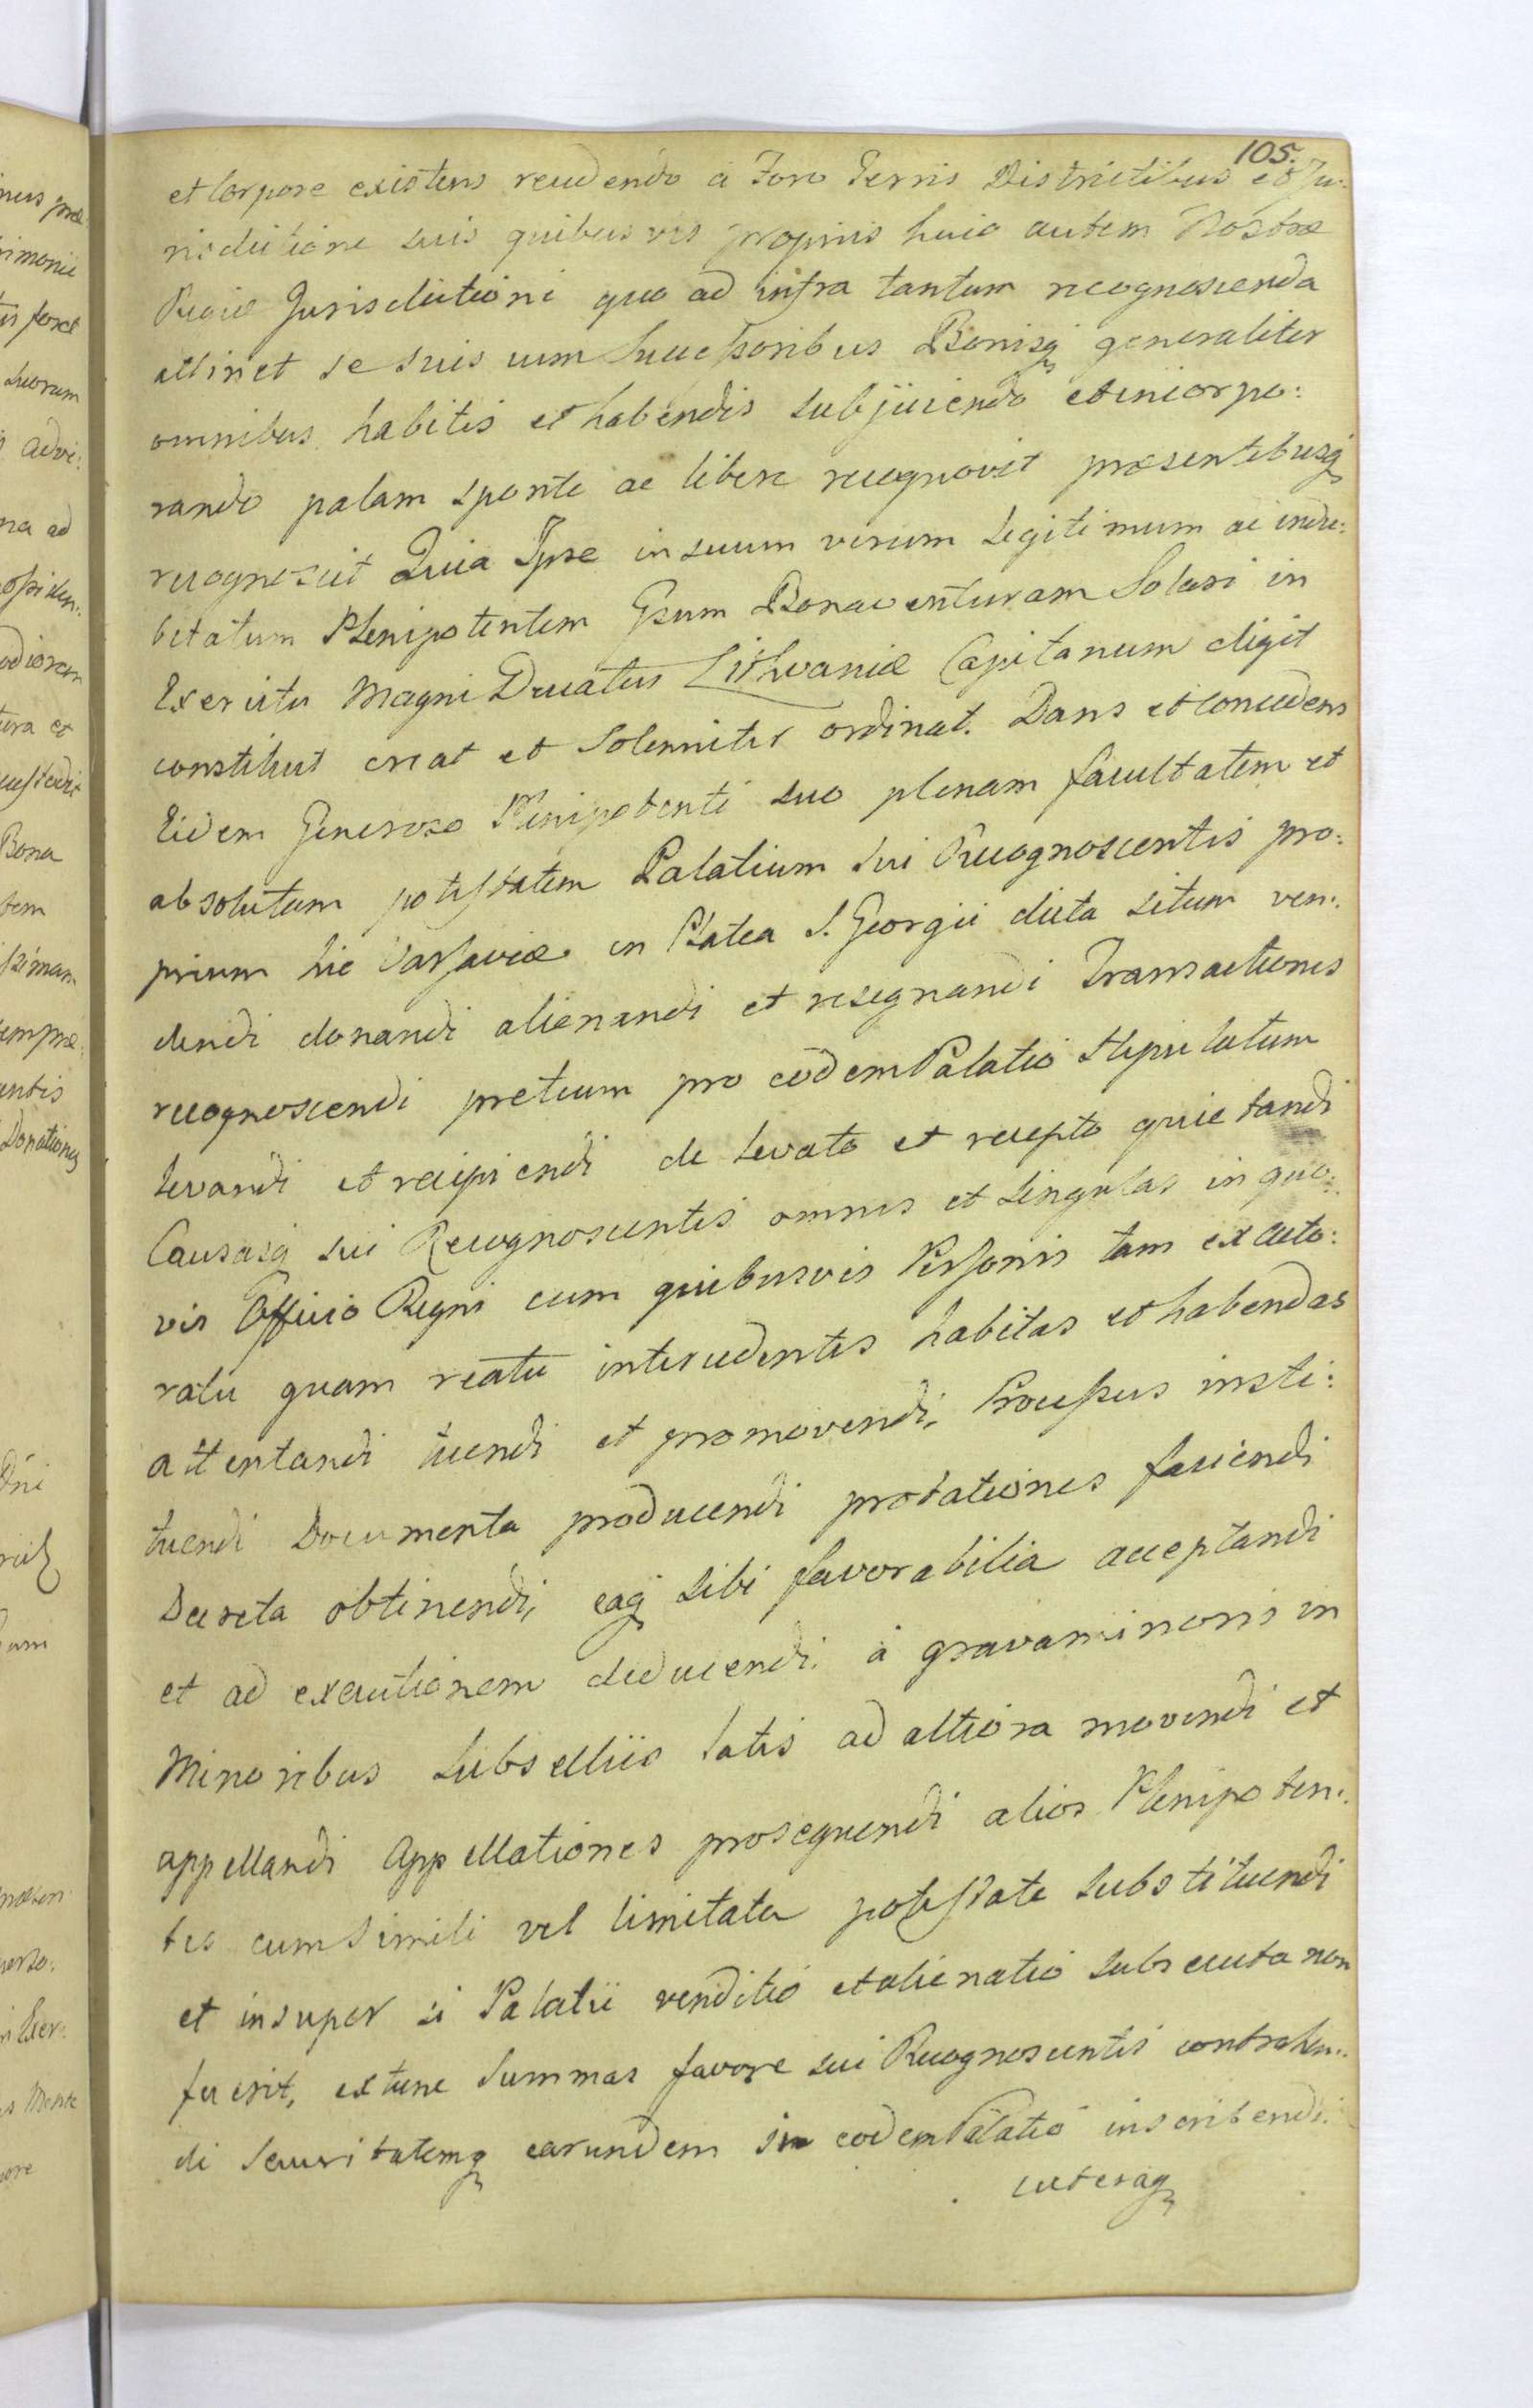 105.
et Corpore existens recedendo a Foro Terris Districtibus et Ju:
risdictione suis quibusvis propriis huic autem Nostræ
Regiæ Jurisdictioni quo ad infra tantum recognoscenda
attinet se suis cum Successoribus Bonisq generaliter
omnibus habitis et habendis subjiciendo et incorpo:
rando palam sponte ac libere recognovit præsentibusq
recognoscit Quia Ipse in suum verum legitimum ac indu:
bitatum Plenipotentem Gsum Bonaventuram Solari in
Exercitu Magni Ducatus Lithvaniæ Capitanum eligit
constituit creat et solemniter ordinat. Dans et Concedens
Eidem Generoso Plenipotenti suo plenam facultatem et
absolutam potestatem Palatium sui Recognoscentis pro:
prium hic Varsaviæ in Platea S. Georgii dicta situm ven:
dendi donandi alienandi et resignandi Transactiones
recognoscendi pretium pro eodem Palatio stipulatum
levandi et recipiendi de levato et recepto quietandi
Causasq sui Recognoscentis omnes et singulas in quo:
vis Officio Regni cum quibusvis Personis tam ex acto:
ratu quam reatu intercedentes habitas et habendas
attentandi tuendi et promovendi, Processus insti:
tuendi Documenta producendi probationes faciendi
Decreta obtinendi, eaq sibi favorabilia acceptandi
et ad executionem deducendi. à gravaminosis in
Minoribus Subselliis latis ad altiora movendi et
appellandi Appellationes prosequendi alios Plenipoten:
tes cum simili vel limitata potestate substituendi
et insuper si Palatii venditio et alienatio subsecuta non
fuerit, extunc Summas favore sui Recognoscentis contrahen:
di Securitatemq earundem in eodem Palatio inscribendi.
cæteraq